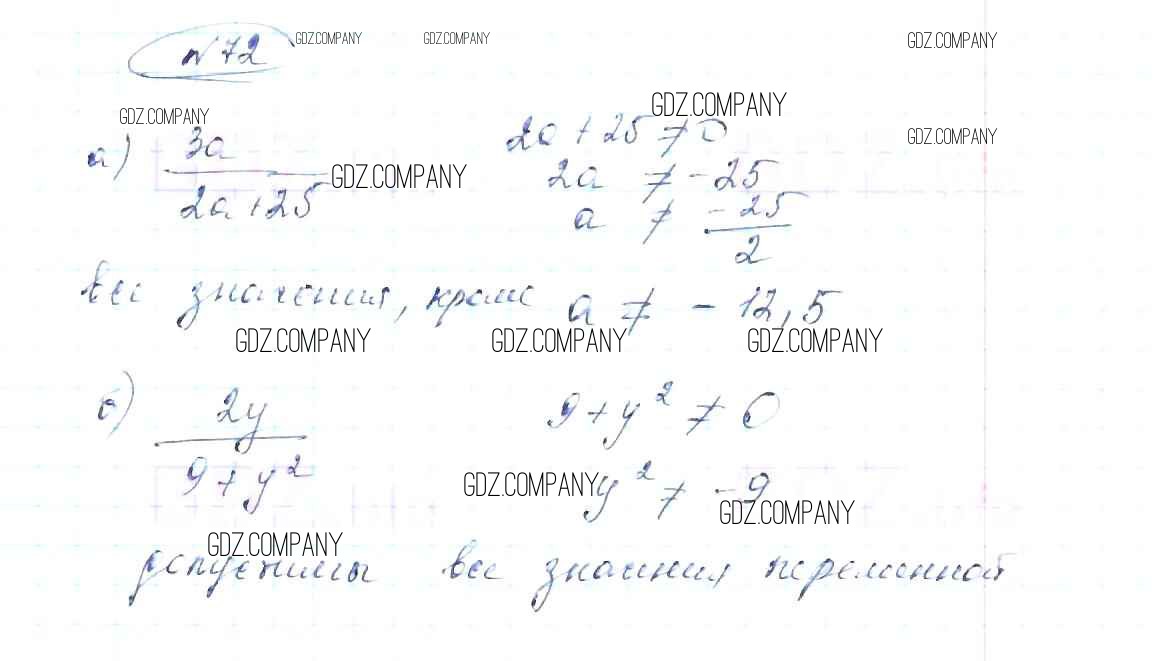 № 72 GDZ.COMPANY GDZ.COMPANY GDZ.COMPANY
GDZ.COMPANY GDZ.COMPANY GDZ.COMPANY
а) 3a / 2a + 25 GDZ.COMPANY
2a + 25 ≠ 0
2a ≠ -25
a ≠ -25 / 2
все значения, кроме a ≠ - 12,5
GDZ.COMPANY GDZ.COMPANY GDZ.COMPANY
б) 2y / 9 + y²
9 + y² ≠ 0
GDZ.COMPANY y² ≠ -9
GDZ.COMPANY
GDZ.COMPANY
допустимы все значения переменной